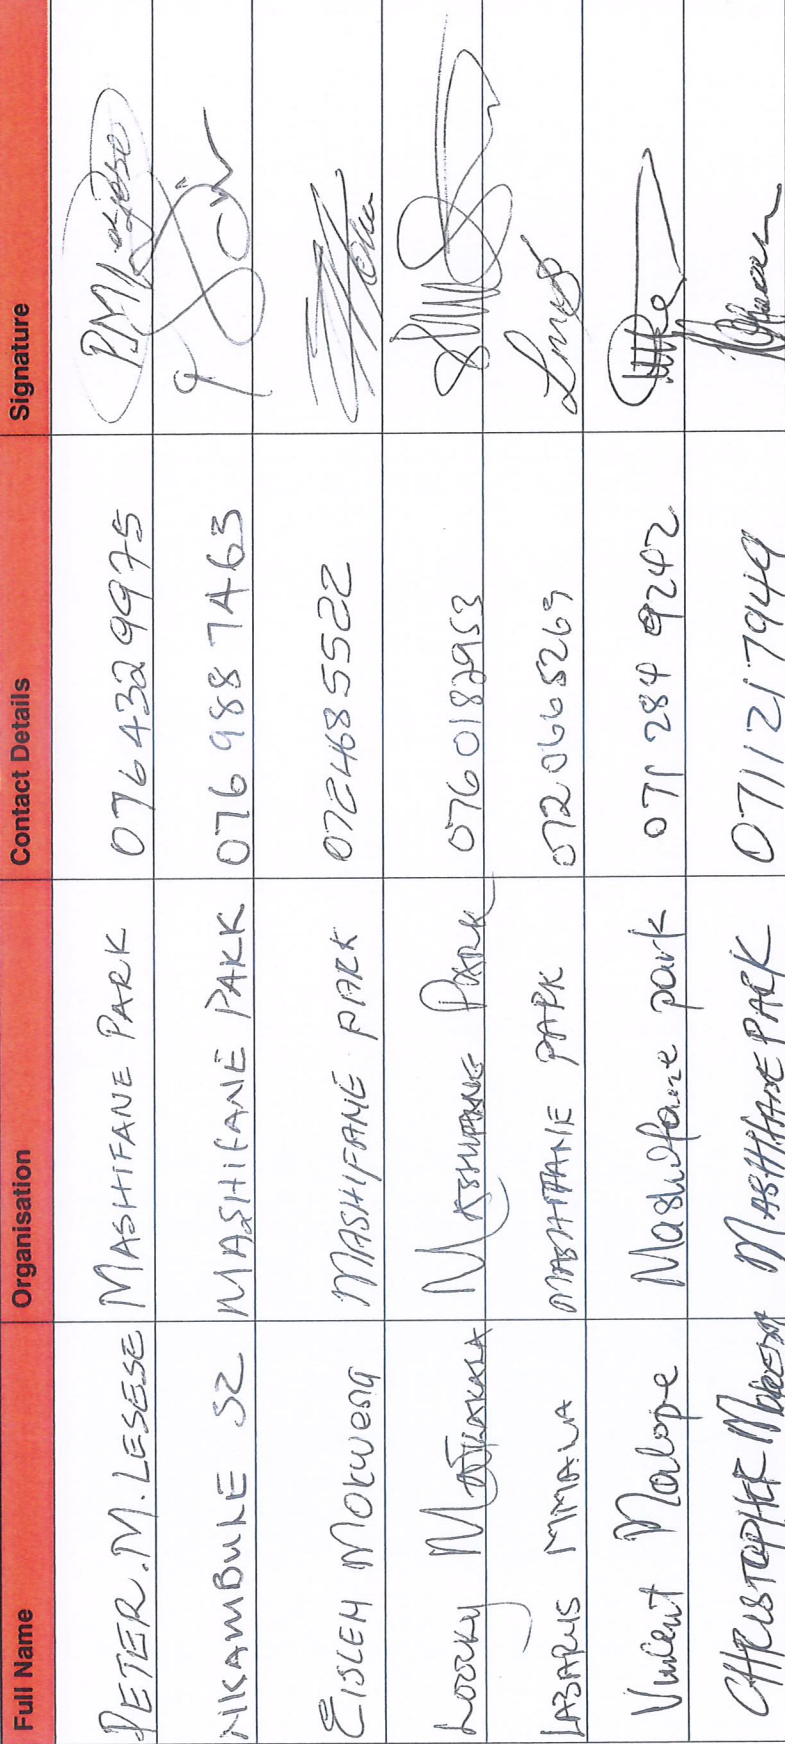 Full Name Organisation Contact Details Signature
PETER.M.LESESE MASHIFANE PARK 076 432 9975
NKAMBULE SZ MASHIFANE PARK 076 988 7463
MASHIFANE PARK 0724685522
MASHIFANE PARK 076 0182953
LAZARUS MASHIFANE PARK 072 0665263
Vincent Malope Mashifane park 071 284 9242
CHRISTOPHER MASHIFANE PARK 0711217949